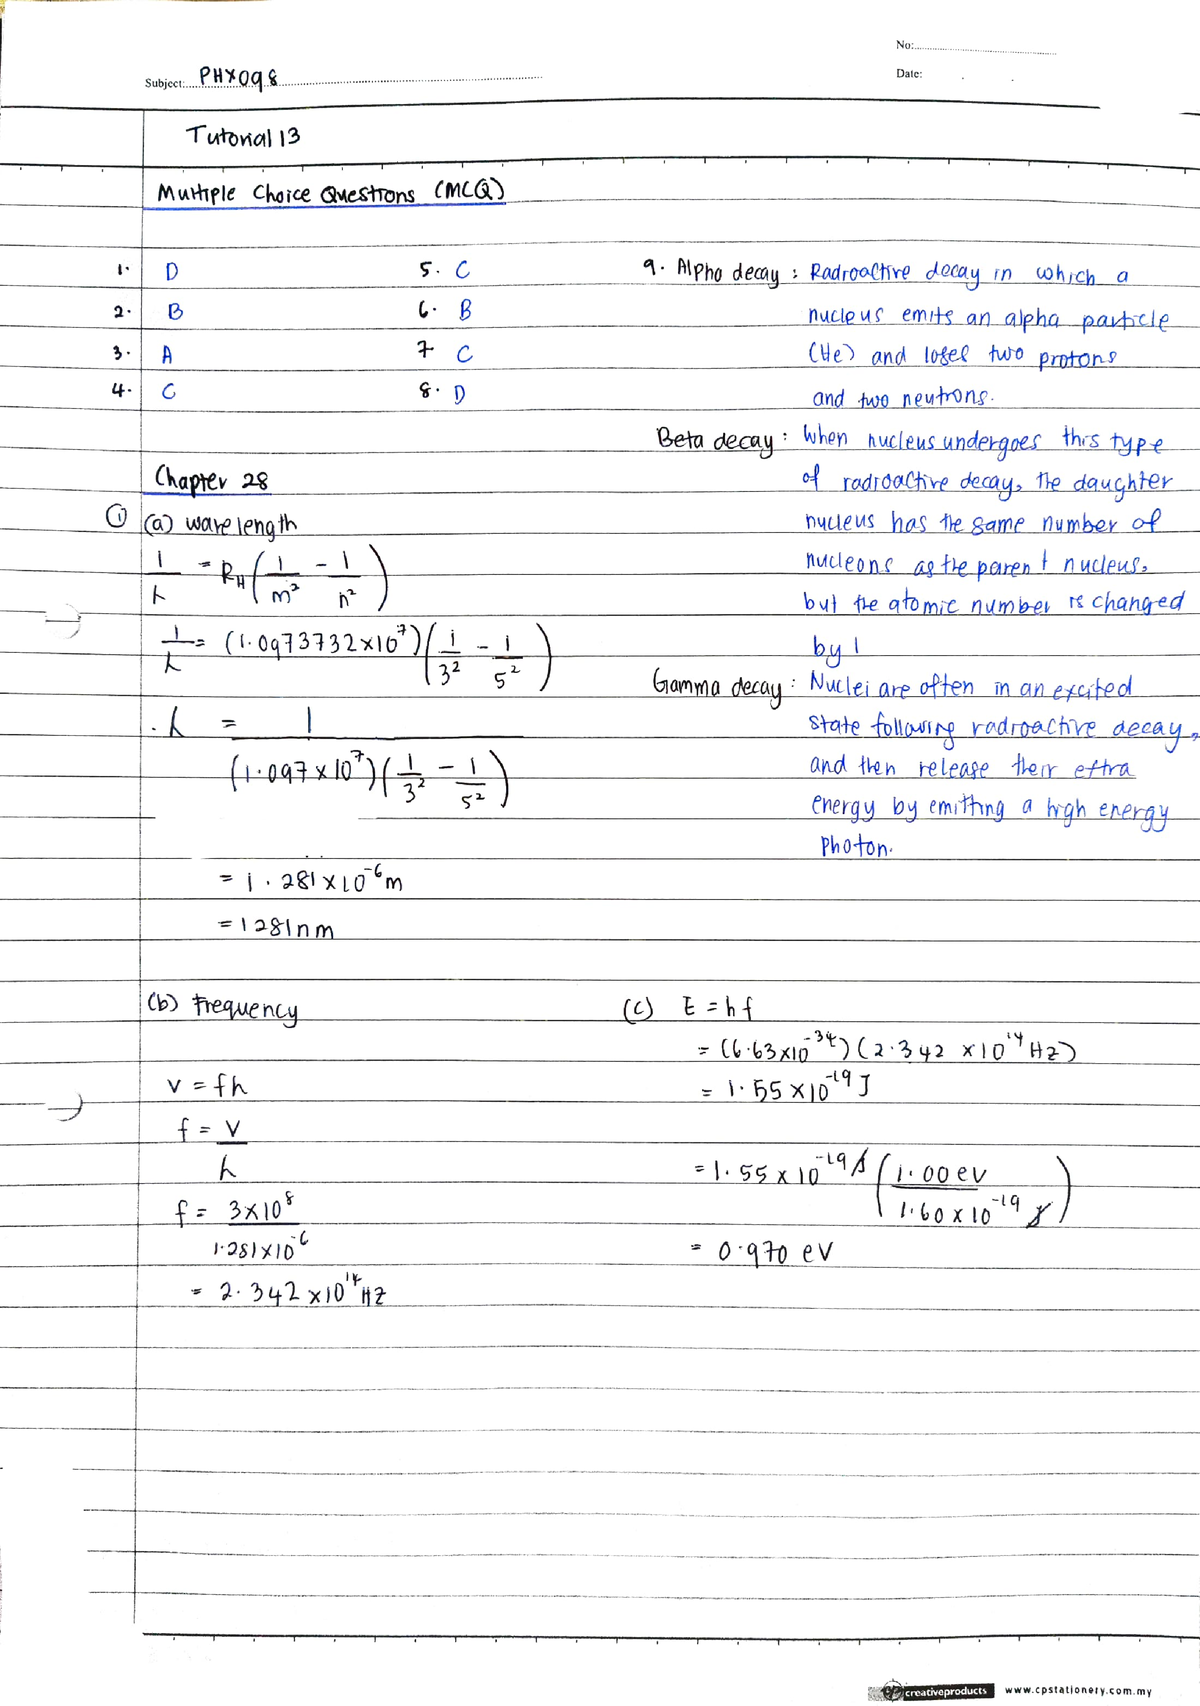 No:
Subject: PHX098
Date:
Tutorial 13
Multiple Choice Questions (MCQ)
1. D
2. B
3. A
4. C
5. C
6. B
7 C
8. D
9. Alpha decay : Radioactive decay in which a
nucleus emits an alpha particle
(He) and loses two protons
and two neutrons.
Beta decay : When nucleus undergoes this type
of radioactive decay, the daughter
nucleus has the same number of
nucleons as the parent nucleus,
but the atomic number is changed
by 1
Gamma decay : Nuclei are often in an excited
state following radioactive decay,
and then release their extra
energy by emitting a high energy
photon.
Chapter 28
① (a) wavelength
1/λ = RH (1/m² - 1/n²)
1/λ = (1.0973732×10⁷)(1/3² - 1/5²)
λ = 1/(1.097×10⁷)(1/3² - 1/5²)
= 1.281×10⁻⁶m
= 1281nm
(b) Frequency
v = fλ
f = v/λ
f = 3×10⁸/1.281×10⁻⁶
= 2.342×10¹⁴Hz
(c) E = hf
= (6.63×10⁻³⁴)(2.342×10¹⁴Hz)
= 1.55×10⁻¹⁹J
= 1.55×10⁻¹⁹J (1.00eV/1.60×10⁻¹⁹J)
= 0.970 eV
cp creativeproducts www.cpstationery.com.my